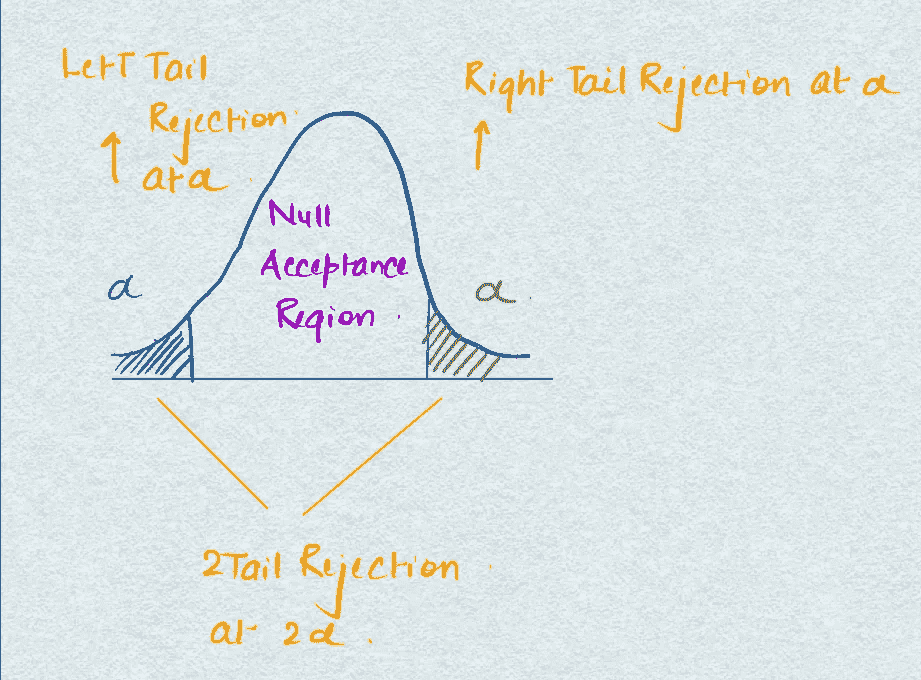 Left Tail
Rejection
at α
Right Tail Rejection at α
Null
Acceptance
Region
α
α
2Tail Rejection
at 2α